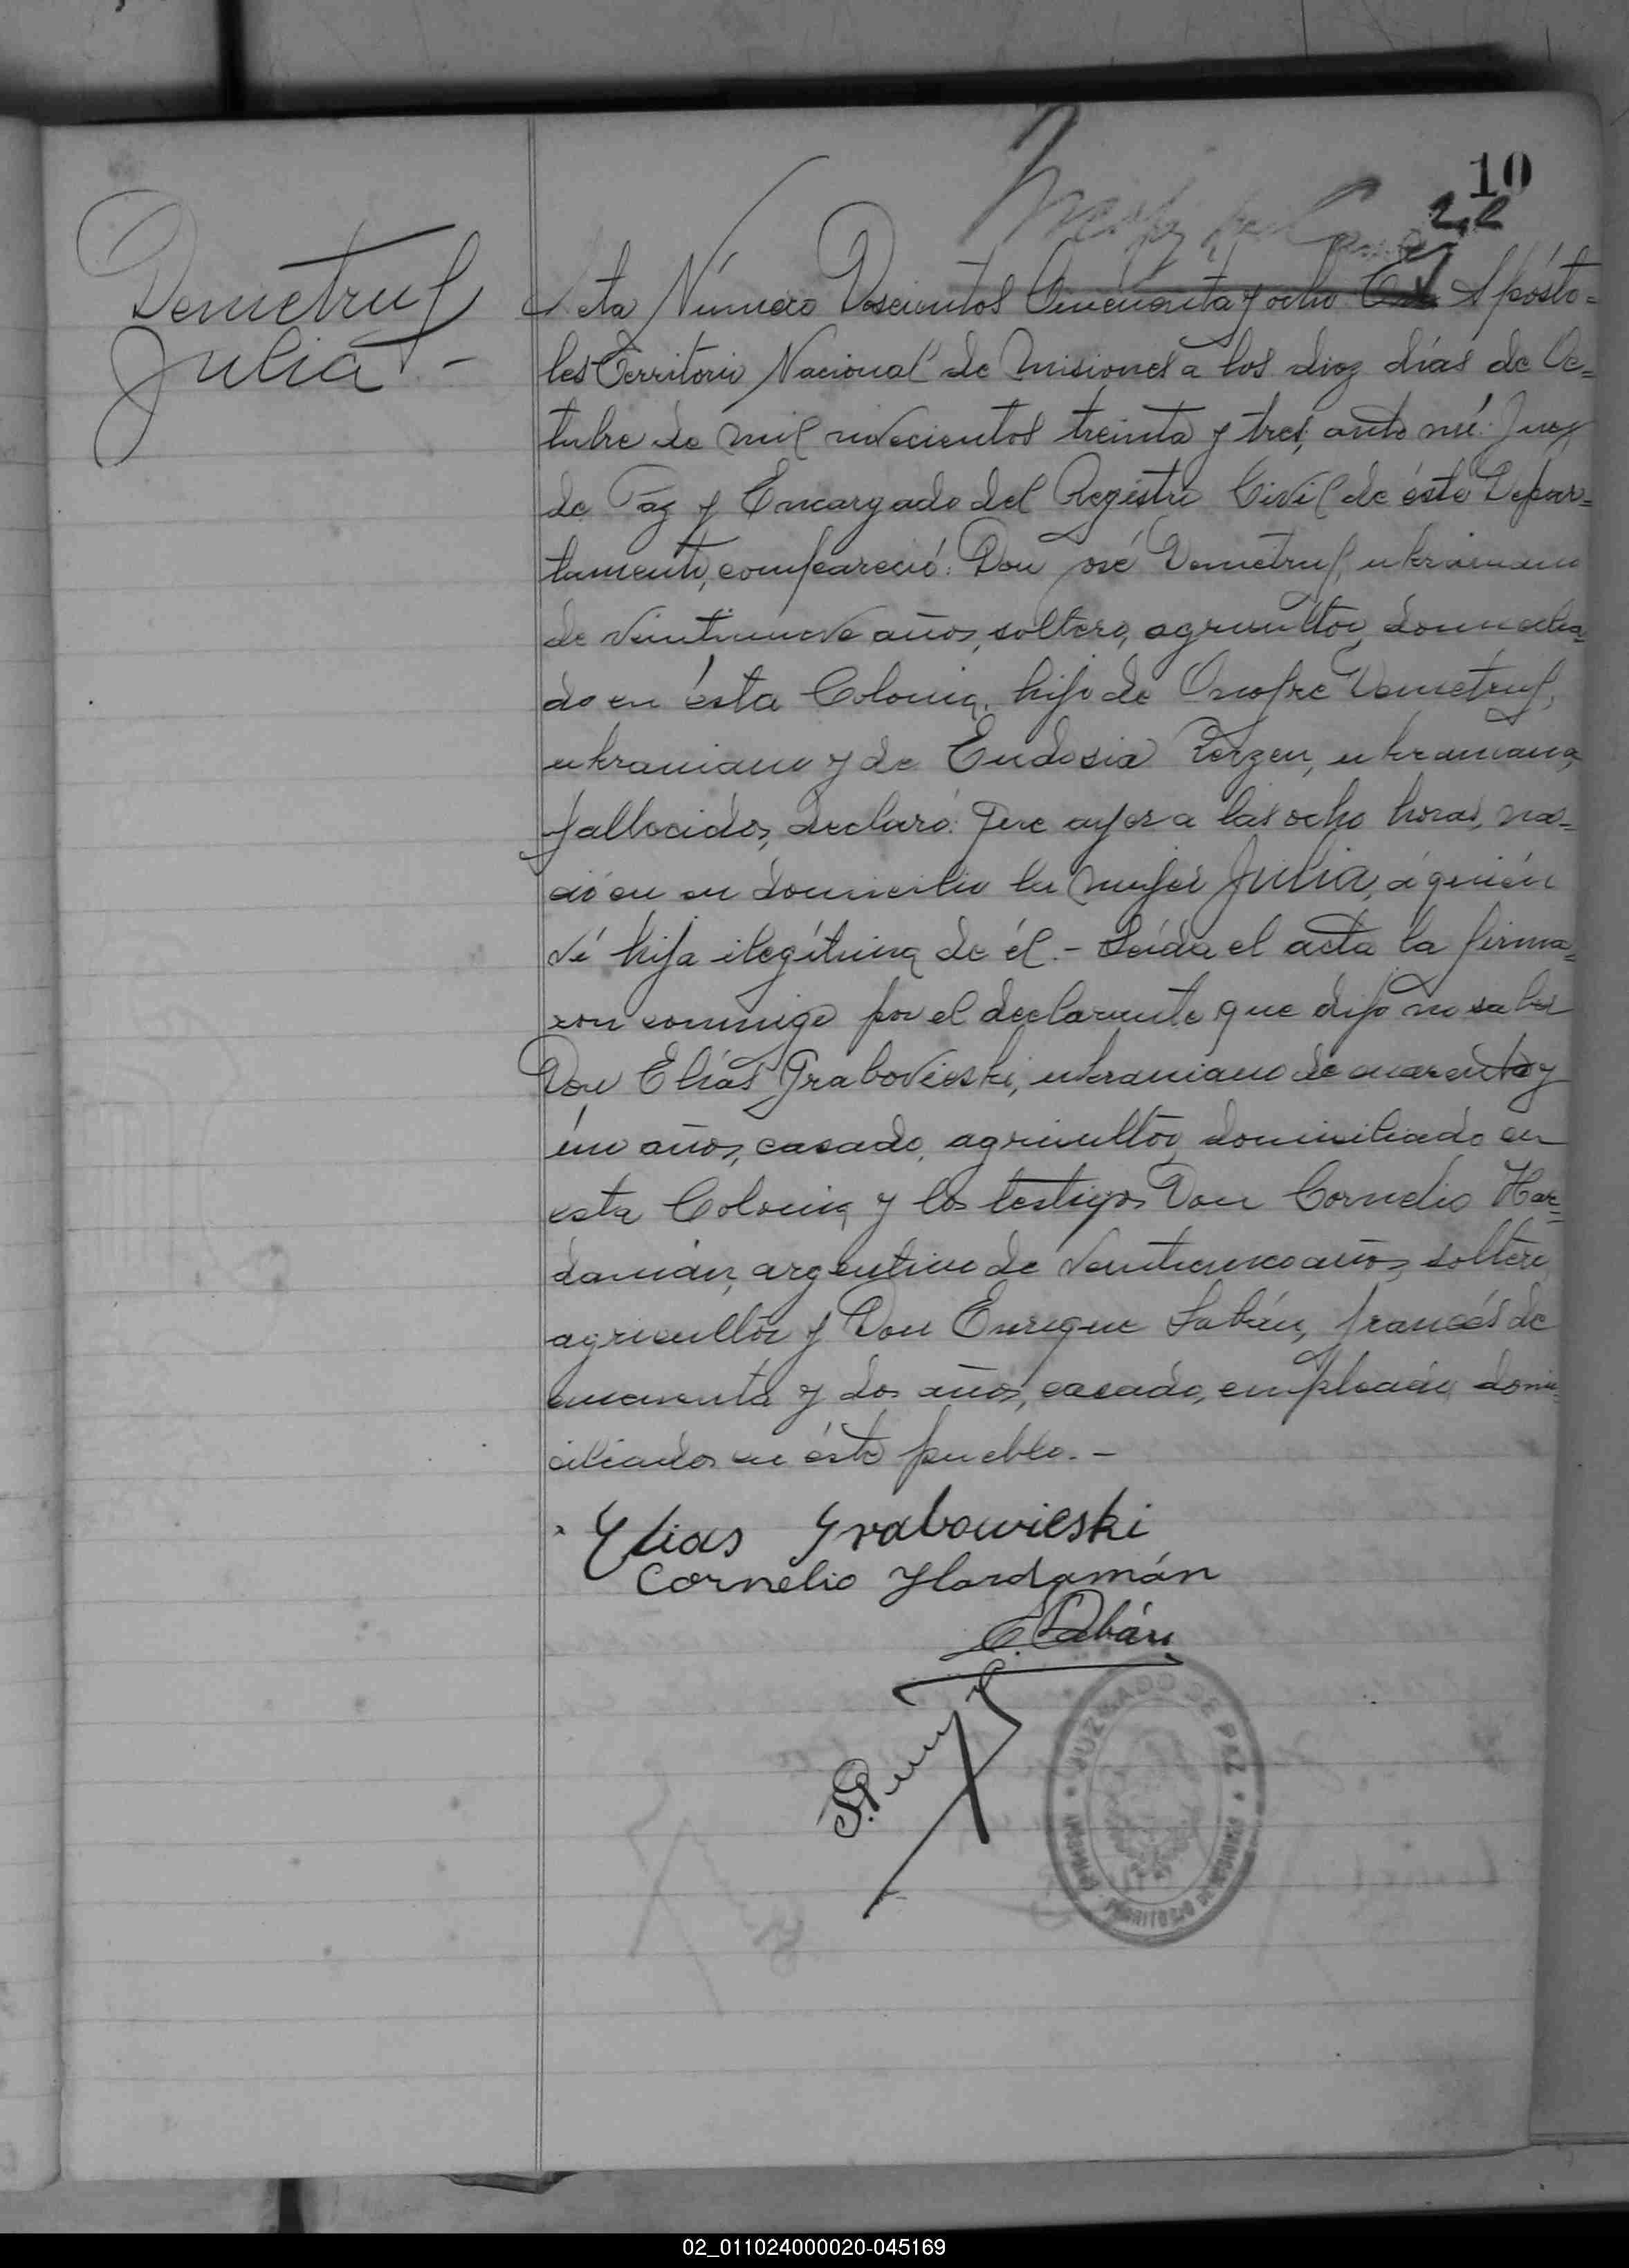 10
22
Demetruf
Julia -
Acta Número Doscientos Cincuenta y ocho En Apósto=
les Territorio Nacional de Misiones a los diez días de Oc=
tubre de mil novecientos treinta y tres, ante mí: Juez
de Paz y Encargado del Registro Civil de éste Depar=
tamento, compareció: Don José Demetruf, ukrainano
de veintinueve años, soltero, agricultor, domicilia=
do en ésta Colonia, hijo de Onofre Demetruf,
ukraniano y de Eudosia Zerzen, ukraniana,
fallecidos, declaró: Que ayer a las ocho horas, na=
ció en su domicilio la mujer Julia, á quién
ví hija ilegítima de él.- Leída el acta la firma=
ron conmigo por el declarante que dijo no saber
Don Elías Grabovieski, ukraniano de cuarenta y
ún años, casado, agricultor, domiciliado en
esta Colonia y los testigos Don Cornelio Har=
damán, argentino de veinticinco años, soltero,
agricultor y Don Enrique Labán, francés de
cincuenta y dos años, casado, empleado, domi=
ciliados en éste pueblo.-
Elias Grabowieski
Cornelio Hardamán
E. Labán
JUZGADO DE PAZ
APOSTOLES - TERRITORIO DE MISIONES
02_011024000020-045169